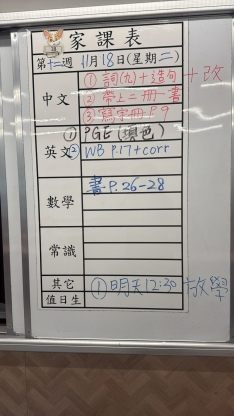 家課表
第十二週 11月18日(星期二)
中文
① 詞(九)+造句+改
② 帶上二冊一書
③ 寫字冊 P.9
英文
① PGE(填色)
② WB P.17+corr
數學
書P.26-28
常識
其它
① 明天12:30放學
值日生